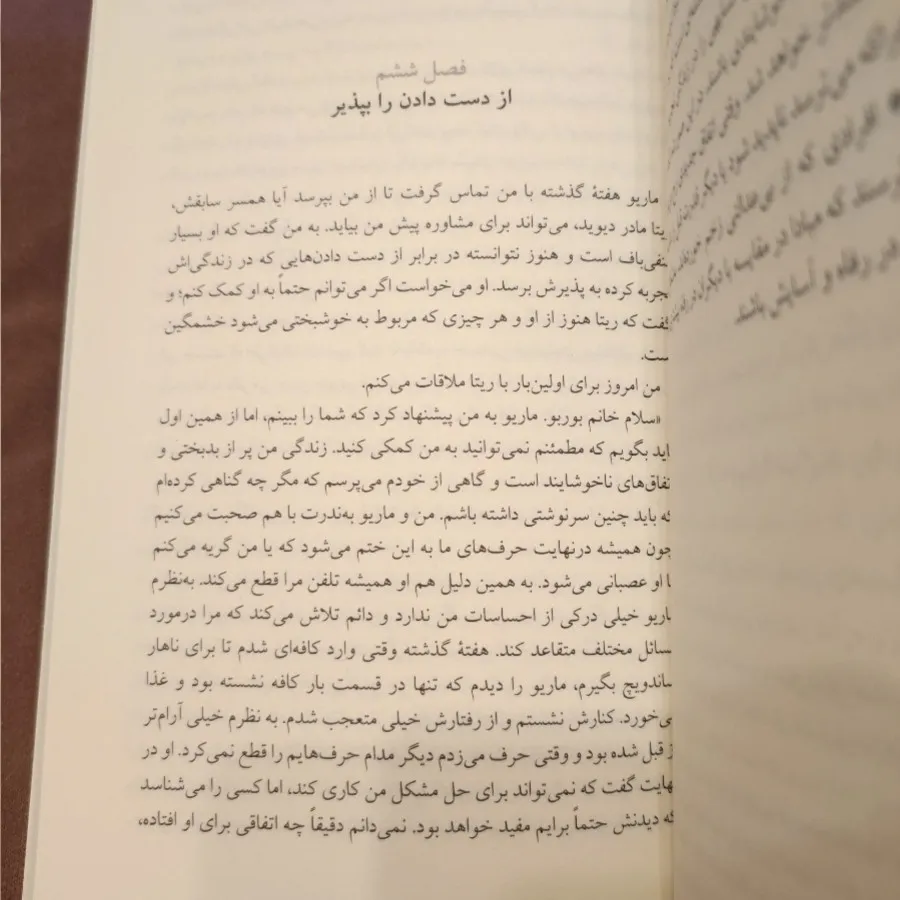 فصل ششم
از دست دادن را بپذیر
ماریو هفتهٔ گذشته با من تماس گرفت تا از من بپرسد آیا همسر سابقش،
ریتا مادر دیوید، می‌تواند برای مشاوره پیش من بیاید. به من گفت که او بسیار
منفی‌باف است و هنوز نتوانسته در برابر از دست دادن‌هایی که در زندگی‌اش
تجربه کرده به پذیرش برسد. او می‌خواست اگر می‌توانم حتماً به او کمک کنم؛ و
گفت که ریتا هنوز از او و هر چیزی که مربوط به خوشبختی می‌شود خشمگین
است.
من امروز برای اولین‌بار با ریتا ملاقات می‌کنم.
«سلام خانم بوربو. ماریو به من پیشنهاد کرد که شما را ببینم، اما از همین اول
باید بگویم که مطمئنم نمی‌توانید به من کمکی کنید. زندگی من پر از بدبختی و
اتفاق‌های ناخوشایند است و گاهی از خودم می‌پرسم که مگر چه گناهی کرده‌ام
که باید چنین سرنوشتی داشته باشم. من و ماریو به‌ندرت با هم صحبت می‌کنیم
چون همیشه درنهایت حرف‌های ما به این ختم می‌شود که یا من گریه می‌کنم
یا او عصبانی می‌شود. به همین دلیل هم او همیشه تلفن مرا قطع می‌کند. به‌نظرم
ماریو خیلی درکی از احساسات من ندارد و دائم تلاش می‌کند که مرا درمورد
مسائل مختلف متقاعد کند. هفتهٔ گذشته وقتی وارد کافه‌ای شدم تا برای ناهار
ساندویچ بگیرم، ماریو را دیدم که تنها در قسمت بار کافه نشسته بود و غذا
می‌خورد. کنارش نشستم و از رفتارش خیلی متعجب شدم. به نظرم خیلی آرام‌تر
از قبل شده بود و وقتی حرف می‌زدم دیگر مدام حرف‌هایم را قطع نمی‌کرد. او در
نهایت گفت که نمی‌تواند برای حل مشکل من کاری کند، اما کسی را می‌شناسد
که دیدنش حتماً برایم مفید خواهد بود. نمی‌دانم دقیقاً چه اتفاقی برای او افتاده،
افرادی که از بی‌عدالتی زخم
که مبادا در مقایسه با دیگران
در رفاه و آسایش باشند.